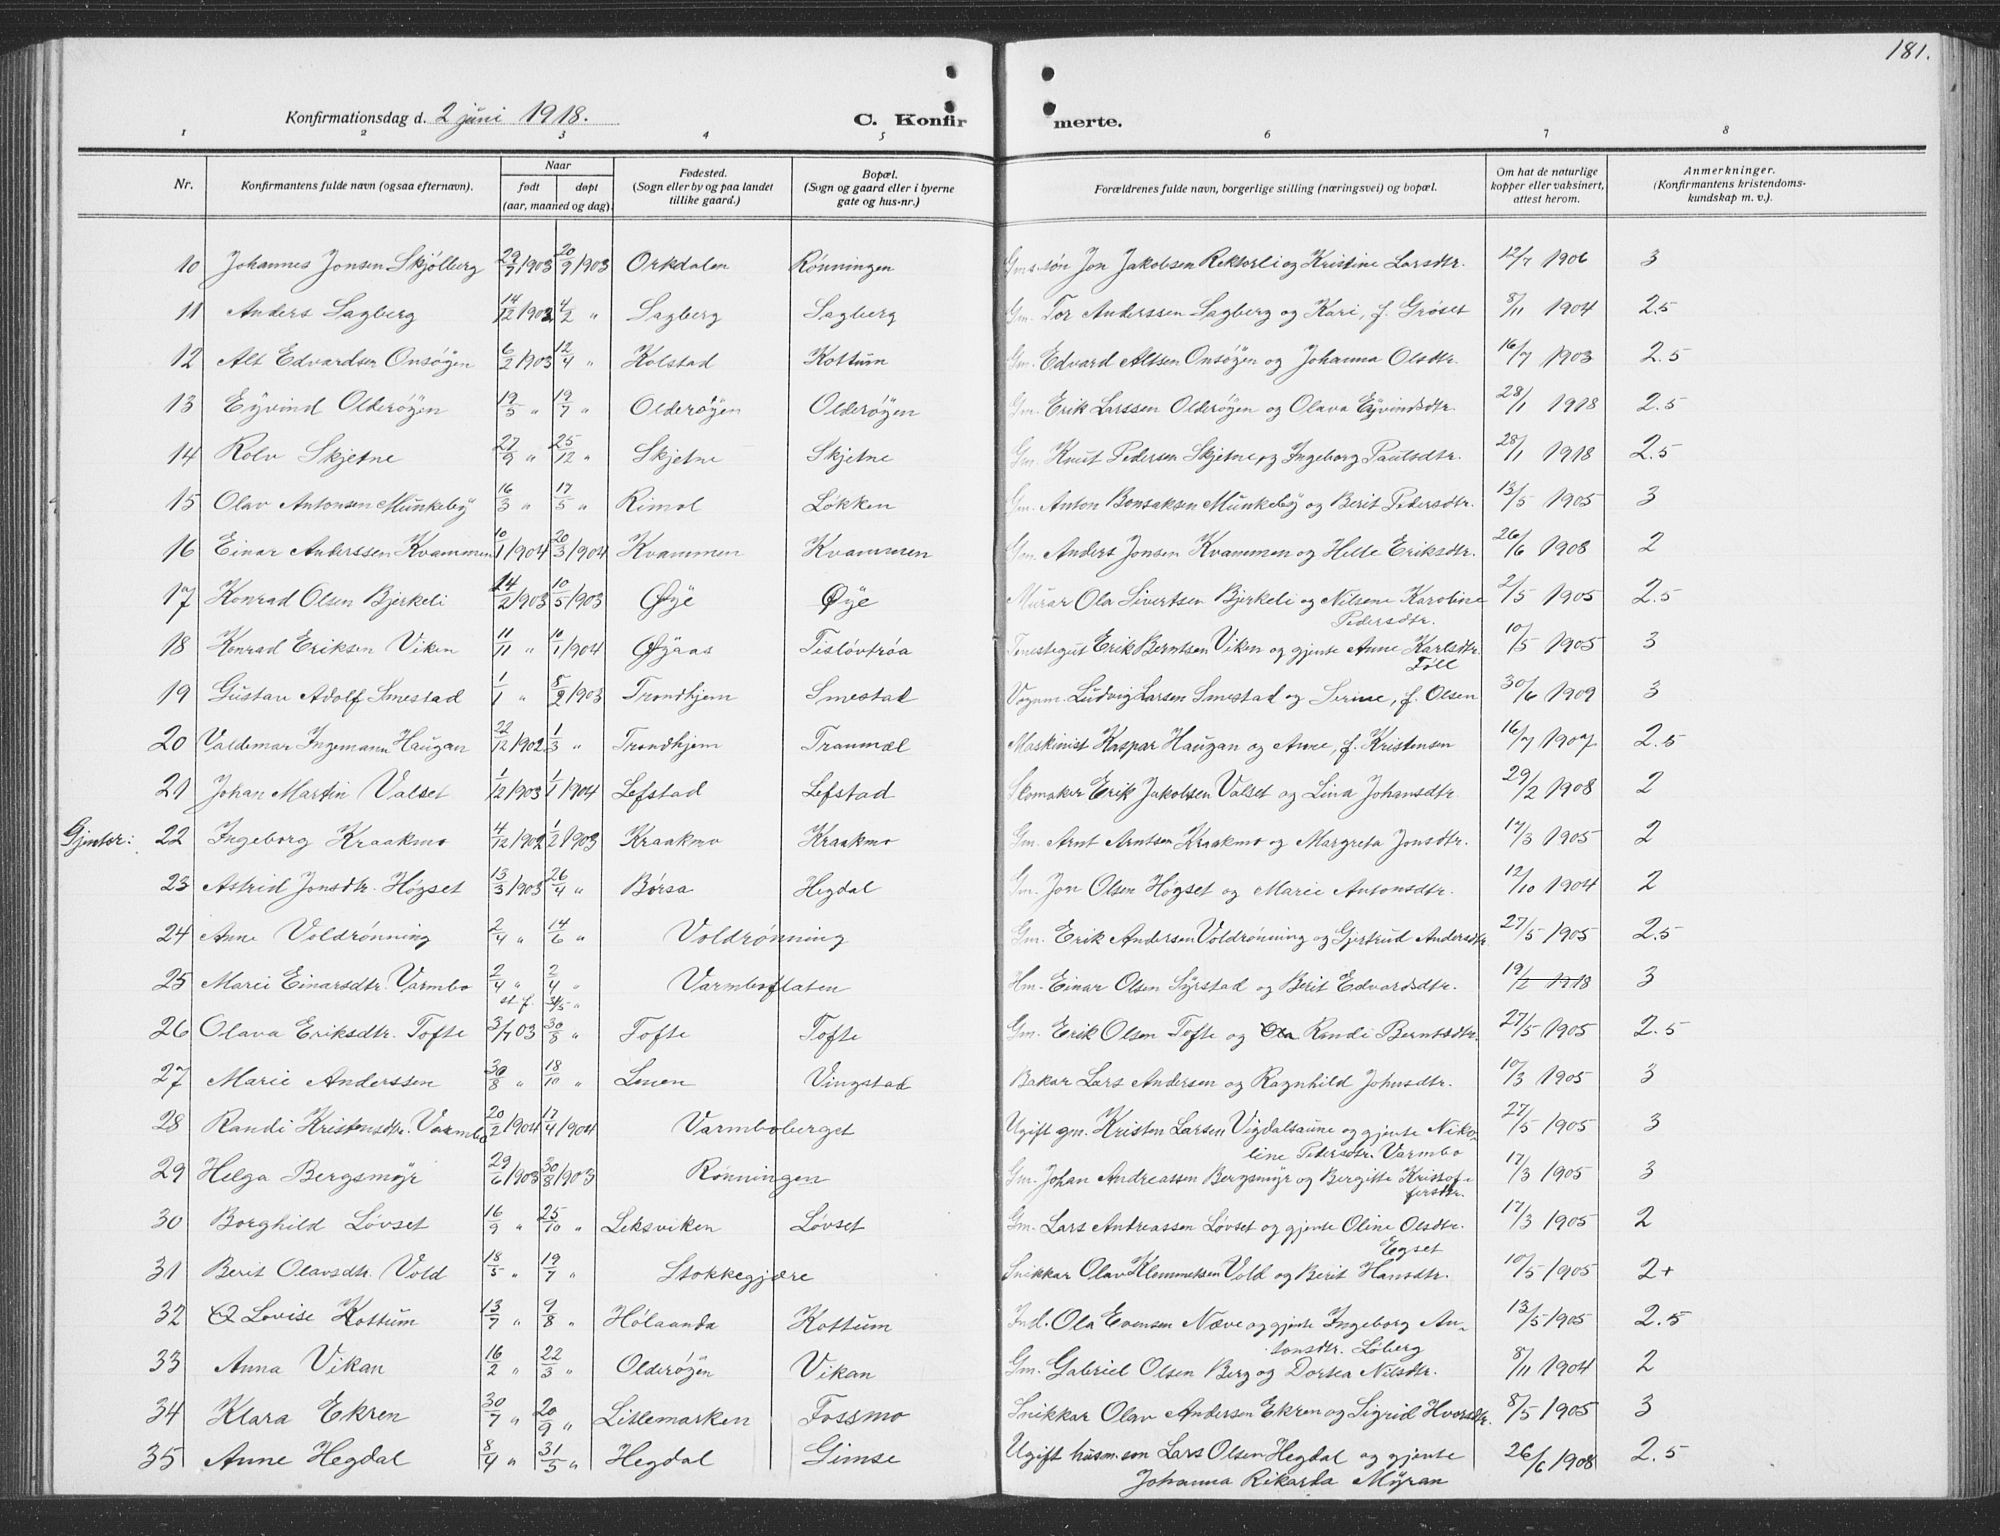 181.
Konfirmationsdag d. 2 juni 1918. C. Konfirmerte.
1 2 3 4 5 6 7 8
Nr. Konfirmantens fulde navn (ogsaa efternavn). Naar født døpt (aar, maaned og dag). Fødested. (Sogn eller by og paa landet tillike gaard.) Bopæl. (Sogn og gaard eller i byerne gate og hus-nr.) Forældrenes fulde navn, borgerlige stilling (næringsvei) og bopæl. Om hat de naturlige kopper eller vaksinert, attest herom. Anmerkninger. (Konfirmantens kristendomskundskap m. v.).
10 Johannes Jonsen Skjølberg 29/7 1903 20/9 1903 Orkdalen Rønningen Gms.søn Jon Jakobsen Rektorli og Kristine Larsdtr. 12/7 1906 3
11 Anders Sagberg 14/12 1902 4/2 " Sagberg Sagberg Gm. Tor Anderssen Sagberg og Kari, f. Grøset 8/11 1904 2.5
12 Alt Edvardsen Onsøyen 6/2 1903 12/4 " Kolstad Kottum Gm. Edvard Altsen Onsøyen og Johanna Olsdtr. 16/7 1903 2.5
13 Eyvind Olderøyen 19/5 " 19/7 " Olderøyen Olderøyen Gm. Erik Larssen Olderøyen og Olava Eyvindsdtr. 28/1 1918 2.5
14 Rolv Skjetne 27/9 " 25/12 " Skjetne Skjetne Gm. Knut Pedersen Skjetne og Ingeborg Paulsdtr. 28/1 1918 2.5
15 Olav Antonsen Munkeby 16/3 " 17/5 " Rimol Løkken Gm. Anton Bonsaksen Munkeby og Berit Pedersdtr. 13/5 1905 3
16 Einar Anderssen Kvammen 10/1 1904 20/3 1904 Kvammen Kvammen Gm. Anders Jonsen Kvammen og Helle Eriksdtr. 26/6 1908 2
17 Konrad Olsen Bjerkeli 14/2 1903 10/5 1903 Øye Øye Murar Ola Sivertsen Bjerkeli og Nilsene Karoline Pedersdtr. 2/5 1905 2.5
18 Konrad Eriksen Viken 11/11 " 10/1 1904 Øyaas Tisløvtrøa Tenestegut Erik Berntsen Viken og gjente Anne Karlsdtr. Føll 10/5 1905 3
19 Gustav Adolf Smestad 1/1 " 8/2 1903 Trondhjem Smestad Vognm. Ludvig Larsen Smestad og Serine, f. Olsen 30/6 1909 3
20 Valdemar Ingemann Haugan 22/12 1902 1/3 " Trondhjem Tranmæl Maskinist Kaspar Haugan og Anne, f. Kristensen 16/7 1907 2.5
21 Johan Martin Valset 1/12 1903 1/1 1904 Lefstad Lefstad Skomaker Erik Jakobsen Valset og Lina Johansdtr. 29/2 1908 2
Gjenter: 22 Ingeborg Kraakmo 4/12 1902 1/2 1903 Kraakmo Kraakmo Gm. Arnt Arntsen Kraakmo og Margreta Jonsdtr. 17/3 1905 2
23 Astrid Jonsdtr. Høgset 13/3 1903 26/4 " Børsa Hegdal Gm. Jon Olsen Høgset og Marie Antonsdtr. 12/10 1904 2
24 Anne Voldrønning 2/4 " 14/6 " Voldrønning Gm. Erik Andersen Voldrønning og Gjertrud Andersdtr. 27/5 1905 2.5
25 Marie Einarsdtr. Varmbo 2/4 " 2/4 " Varmboflaten Hm. Einar Olsen Syrstad og Berit Edvardsdtr. 19/2 1918 3
st. f. 31/5 "
26 Olava Eriksdtr. Tofte 3/7 03 30/8 " Tofte Tofte Gm. Erik Olsen Tofte og Ola Randi Berntsdtr. 27/5 1905 2.5
27 Marie Anderssen 30/8 " 18/10 " Lenen Vingstad Bakar Lars Andersen og Ragnhild Johnsdtr. 10/3 1905 3
28 Randi Kristensdtr. Varmbo 20/2 1904 17/4 1904 Varmboberget Ugift gm. Kristen Larsen Vigdalsaune og gjente Nikoline Pedersdtr. Varmbo 27/5 1905 3
29 Helga Bergsmyr 29/6 1903 30/8 1903 Rønningen Gm. Johan Andreassen Bergsmyr og Bergitte Kristoffersdtr. 17/3 1905 3
30 Borghild Løvset 16/9 " 25/10 " Leksviken Løvset Gm. Lars Andreassen Løvset og gjente Oline Olsdtr. Egset 17/3 1905 2
31 Berit Olavsdtr. Vold 18/5 " 19/7 " Stokkegjære Snikkar Olav Klemmetsen Vold og Berit Hansdtr. 10/5 1905 2+
32 Lovise Kottum 13/7 " 9/8 " Hølaanda Kottum Ind. Ola Evensen Næve og gjente Ingeborg Antonsdtr. Løberg 13/5 1905 2.5
33 Anna Vikan 16/2 " 22/3 " Olderøyen Vikan Gm. Gabriel Olsen Berg og Dortea Nilsdtr. 8/11 1904 2
34 Klara Ekren 30/7 " 20/9 " Litlemarken Fossmo Snikkar Olav Andersen Ekren og Sigrid Hvorsdtr. 8/5 1905 3
35 Anne Hegdal 8/4 " 31/5 " Hegdal Gimse Ugift husm.søn Lars Olsen Hegdal og gjente Johanna Rikarda Myran 26/6 1908 2.5